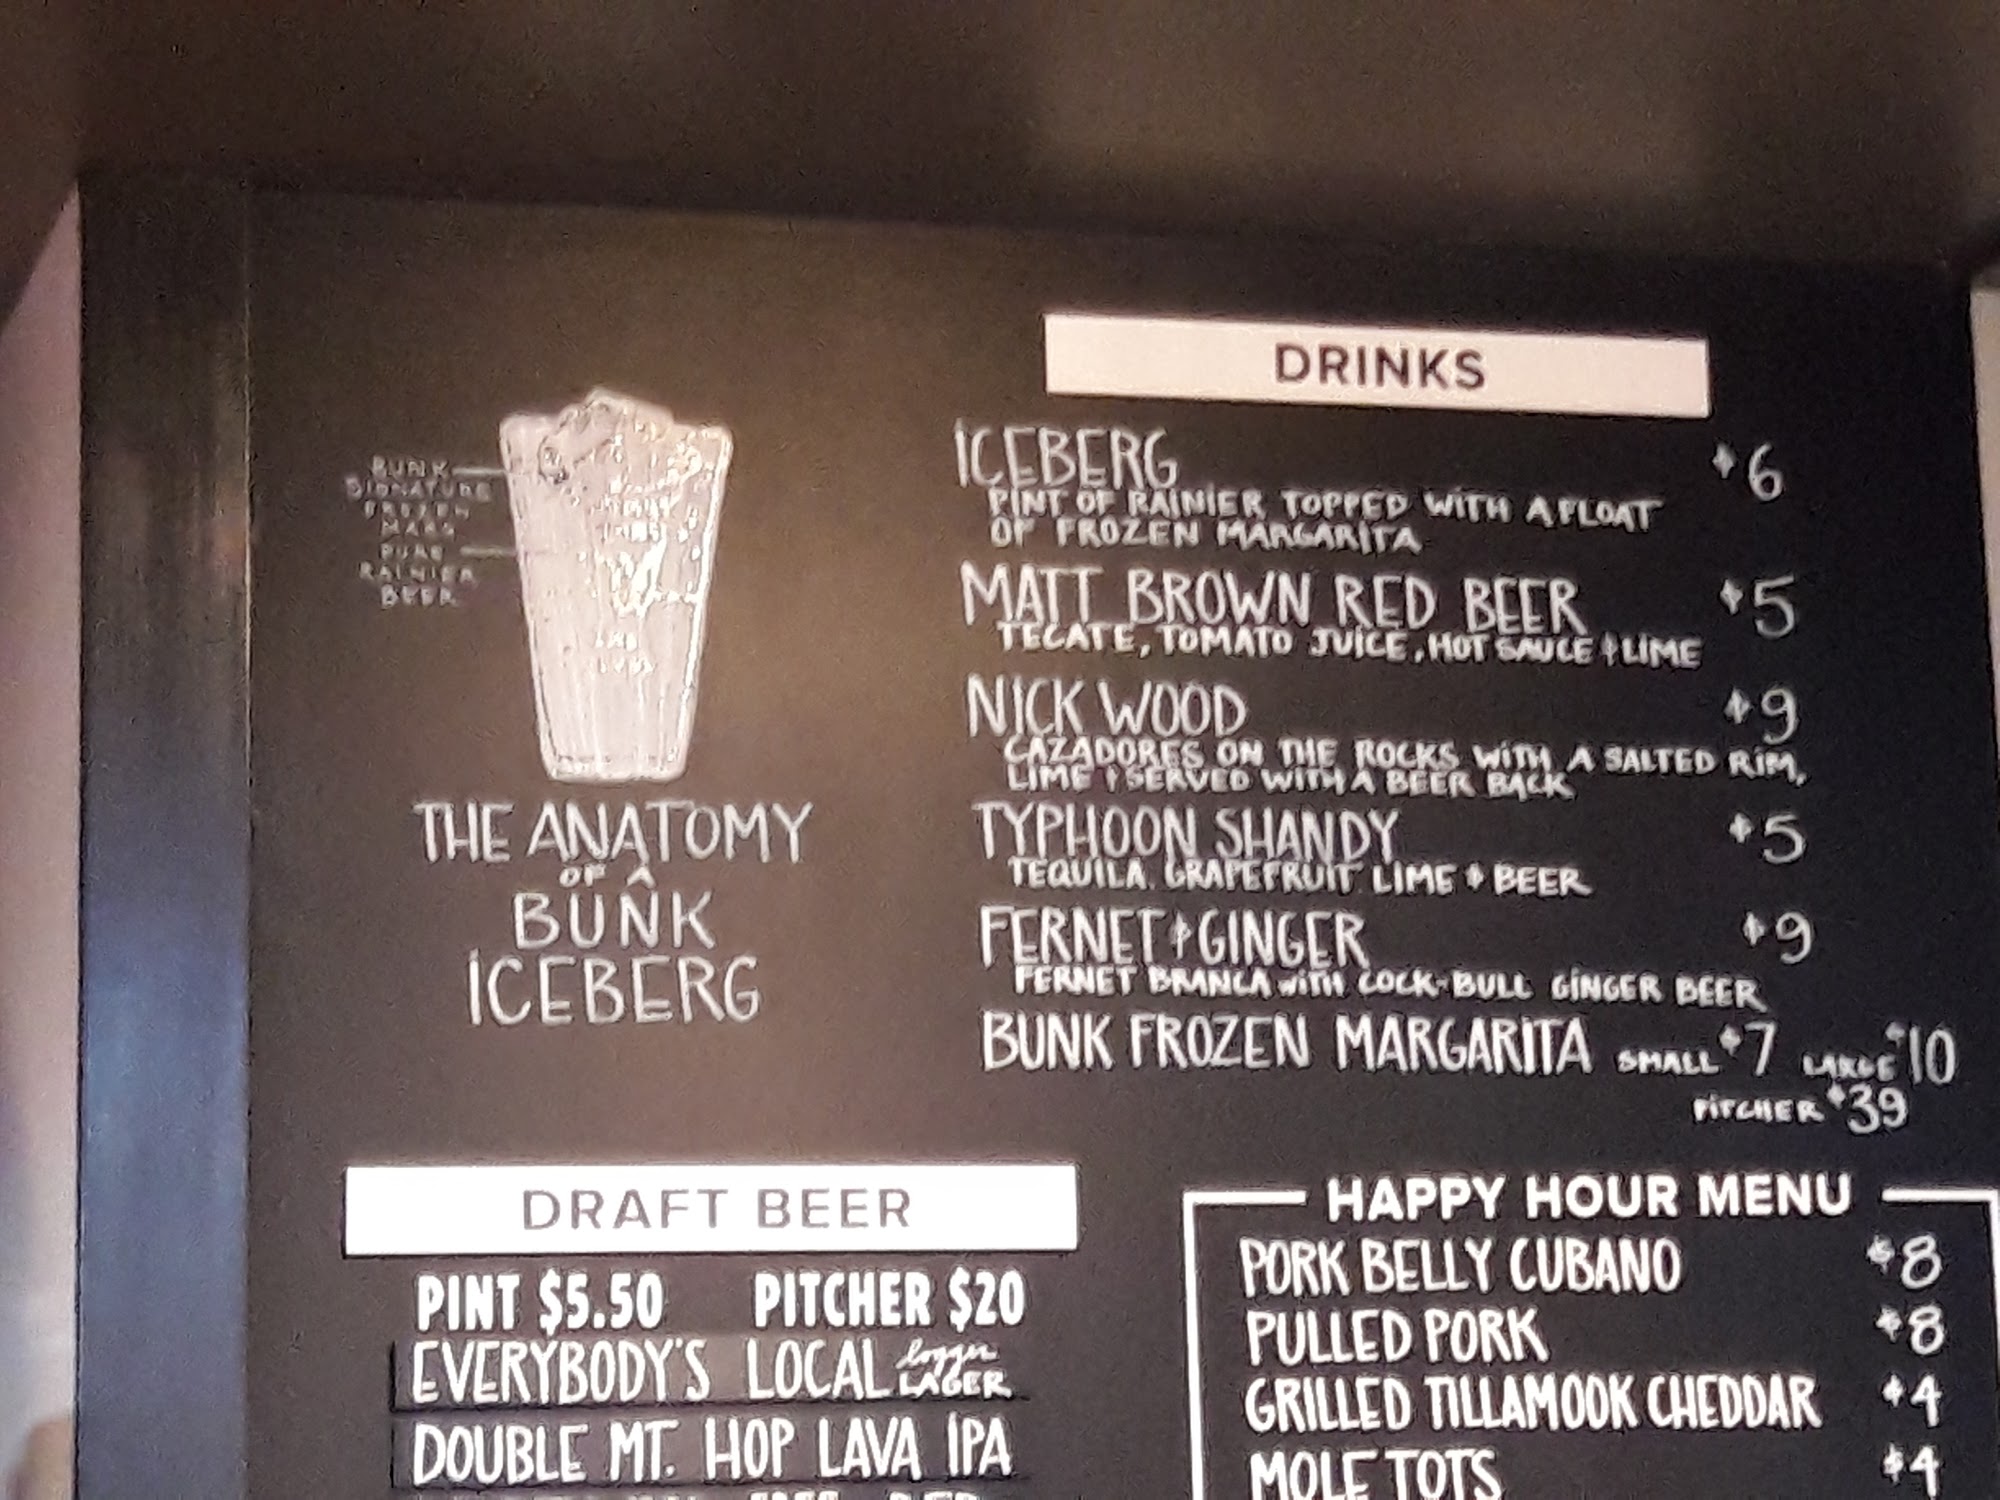 BUNK
SIGNATURE
FROZEN
MARG
PURE
RAINIER
BEER
THE ANATOMY
OF A
BUNK
ICEBERG
DRINKS
ICEBERG $6
PINT OF RAINIER TOPPED WITH A FLOAT
OF FROZEN MARGARITA
MATT BROWN RED BEER $5
TECATE, TOMATO JUICE, HOT SAUCE & LIME
NICK WOOD $9
CAZADORES ON THE ROCKS WITH A SALTED RIM,
LIME & SERVED WITH A BEER BACK
TYPHOON SHANDY $5
TEQUILA. GRAPEFRUIT. LIME & BEER
FERNET & GINGER $9
FERNET BRANCA WITH COCK-BULL GINGER BEER
BUNK FROZEN MARGARITA SMALL $7 LARGE $10
PITCHER $39
DRAFT BEER
PINT $5.50 PITCHER $20
EVERYBODY'S LOCAL logger
LAGER
DOUBLE MT. HOP LAVA IPA
HAPPY HOUR MENU
PORK BELLY CUBANO $8
PULLED PORK $8
GRILLED TILLAMOOK CHEDDAR $4
MOLE TOTS $4